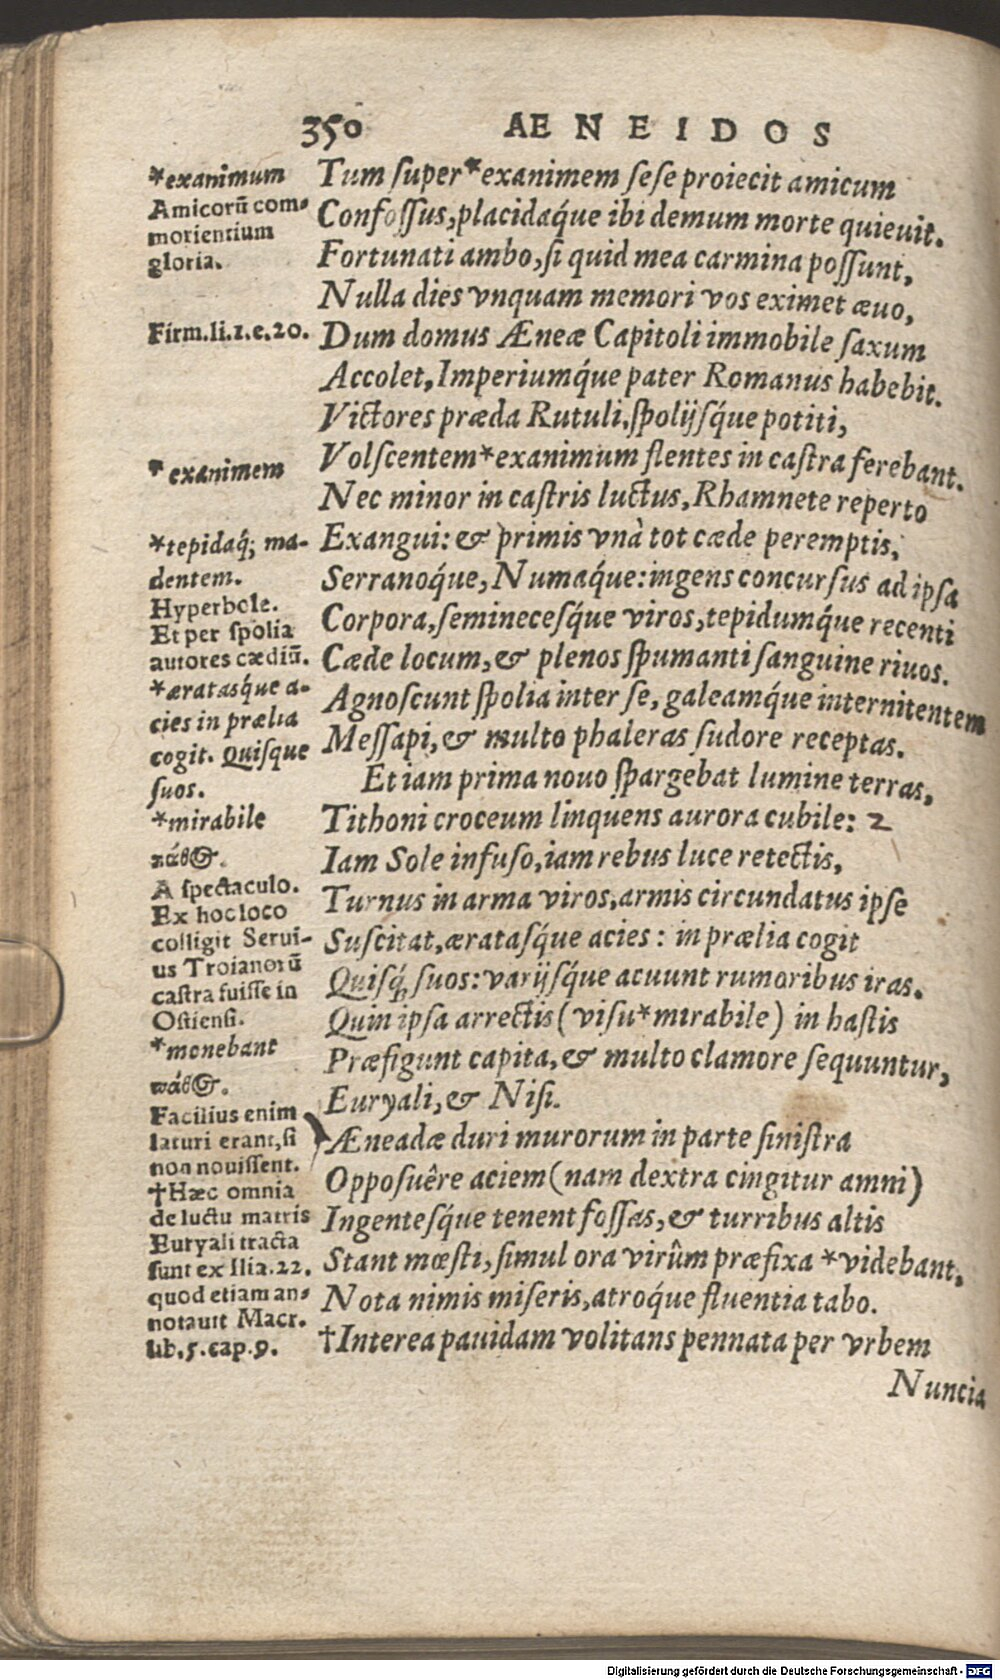 350 AENEIDOS
*exanimum
Amicorū com-
morientium
gloria.
Firm.li.1.c.20.
* exanimem
*tepidaq́; ma-
dentem.
Hyperbole.
Et per spolia
autores cædiū.
*æratasq́ue a-
cies in prælia
cogit. Quisque
suos.
*mirabile
πάθ⊕.
A spectaculo.
Ex hoc loco
colligit Serui-
us Troianorū
castra fuisse in
Ostiensi.
*monebant
πάθ⊕.
Facilius enim
laturi erant, si
non nouissent.
†Hæc omnia
de luctu matris
Euryali tracta
sunt ex Ilia.22.
quod etiam an-
notauit Macr.
lib.5.cap.9.
Tum super*exanimem sese proiecit amicum
Confossus, placidaq́ue ibi demum morte quieuit.
Fortunati ambo, si quid mea carmina possunt,
Nulla dies vnquam memori vos eximet æuo,
Dum domus Æneæ Capitoli immobile saxum
Accolet, Imperiumq́ue pater Romanus habebit.
Victores præda Rutuli, spolijsq́ue potiti,
Volscentem*exanimum flentes in castra ferebant.
Nec minor in castris luctus, Rhamnete reperto
Exangui: & primis vnà tot cæde peremptis,
Serranoq́ue, Numaq́ue: ingens concursus ad ipsa
Corpora, seminecesq́ue viros, tepidumq́ue recenti
Cæde locum, & plenos spumanti sanguine riuos.
Agnoscunt spolia inter se, galeamq́ue internitentem
Messapi, & multo phaleras sudore receptas.
Et iam prima nouo spargebat lumine terras,
Tithoni croceum linquens aurora cubile: 2
Iam Sole infuso, iam rebus luce retectis,
Turnus in arma viros, armis circundatus ipse
Suscitat, æratasq́ue acies: in prælia cogit
Quisq́; suos: varijsq́ue acuunt rumoribus iras.
Quin ipsa arrectis (visu*mirabile) in hastis
Præfigunt capita, & multo clamore sequuntur,
Euryali, & Nisi.
Æneadæ duri murorum in parte sinistra
Opposuêre aciem (nam dextra cingitur amni)
Ingentesq́ue tenent fossas, & turribus altis
Stant mœsti, simul ora virûm præfixa *videbant,
Nota nimis miseris, atroq́ue fluentia tabo.
†Interea pauidam volitans pennata per vrbem
Nuncia
Digitalisierung gefördert durch die Deutsche Forschungsgemeinschaft - DFG